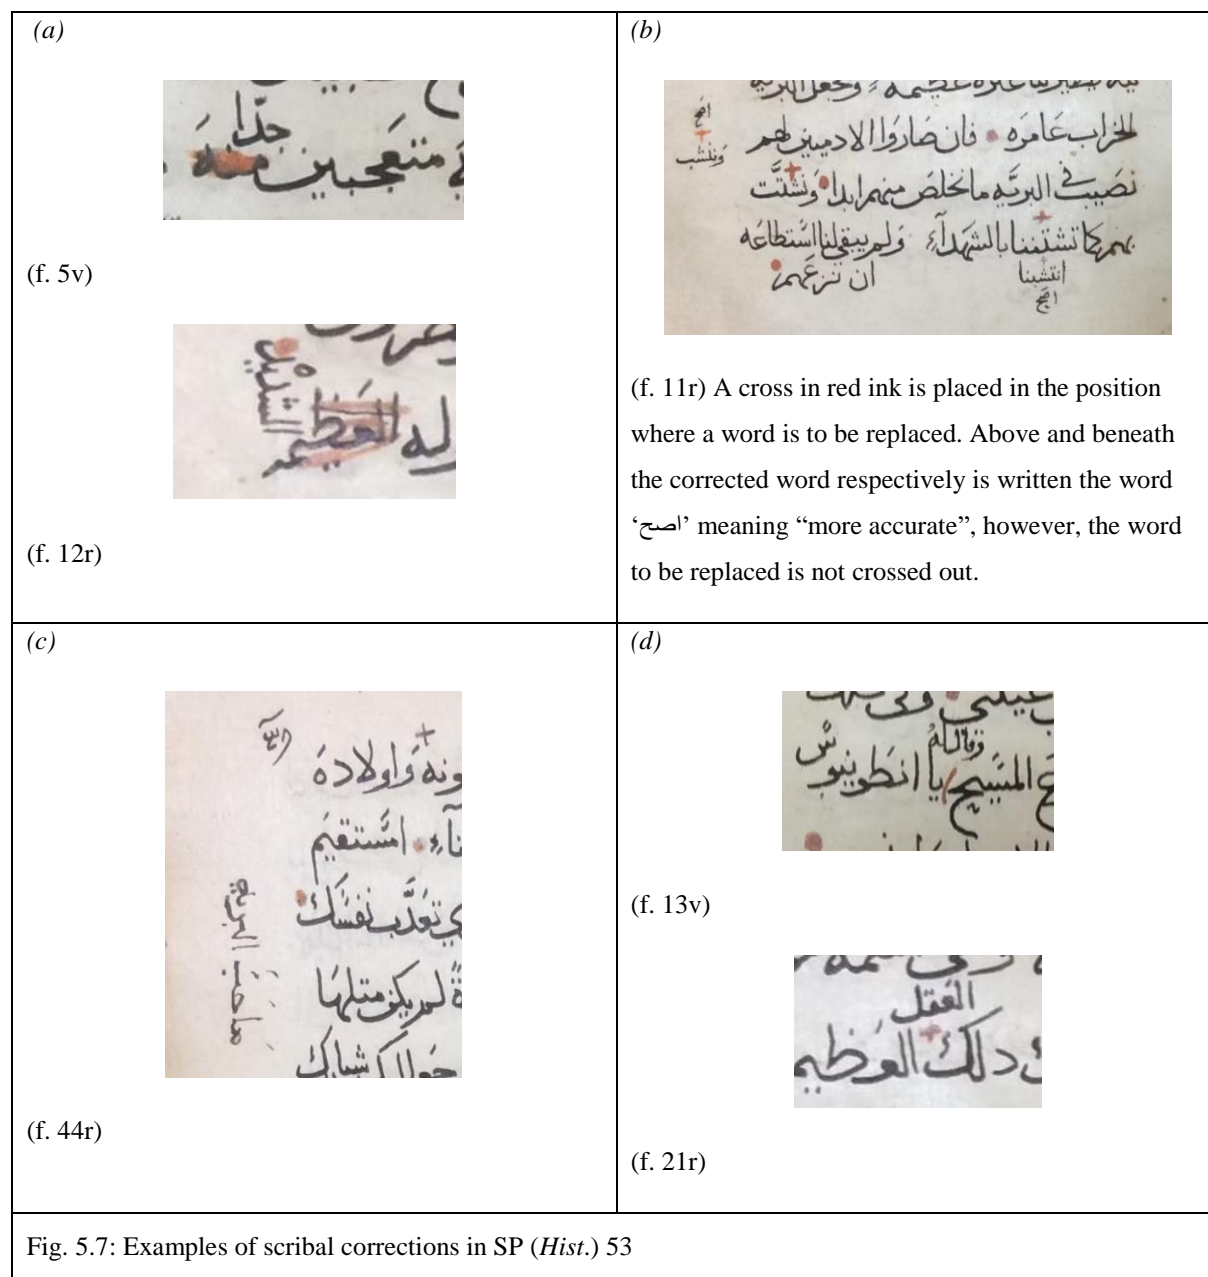 (a)
جدّا
متعجبين منه
(f. 5v)
الشديد
له العظيم
(f. 12r)
(b)
الخراب عَامرَه • فان صَاروا الادميين لهم
اصح
ونلشب
نصَيب في البريَّه ما نخلصَ منهم ابدا • ونشتَّت
بهم كما تشتتنا بالشهدآء ولم يبقي لنا استطاعَه
انتشبنا
اصح
ان ننزعَهم
(f. 11r) A cross in red ink is placed in the position
where a word is to be replaced. Above and beneath
the corrected word respectively is written the word
‘اصح’ meaning “more accurate”, however, the word
to be replaced is not crossed out.
(c)
ونهُ وَاولادهَ
استقيم
تعذّب نفسَك
لم يكن متلهَا
(f. 44r)
(d)
وقال لهُ
المسَيح يا انطونيوس
(f. 13v)
العقل
دلك العَظيم
(f. 21r)
Fig. 5.7: Examples of scribal corrections in SP (Hist.) 53